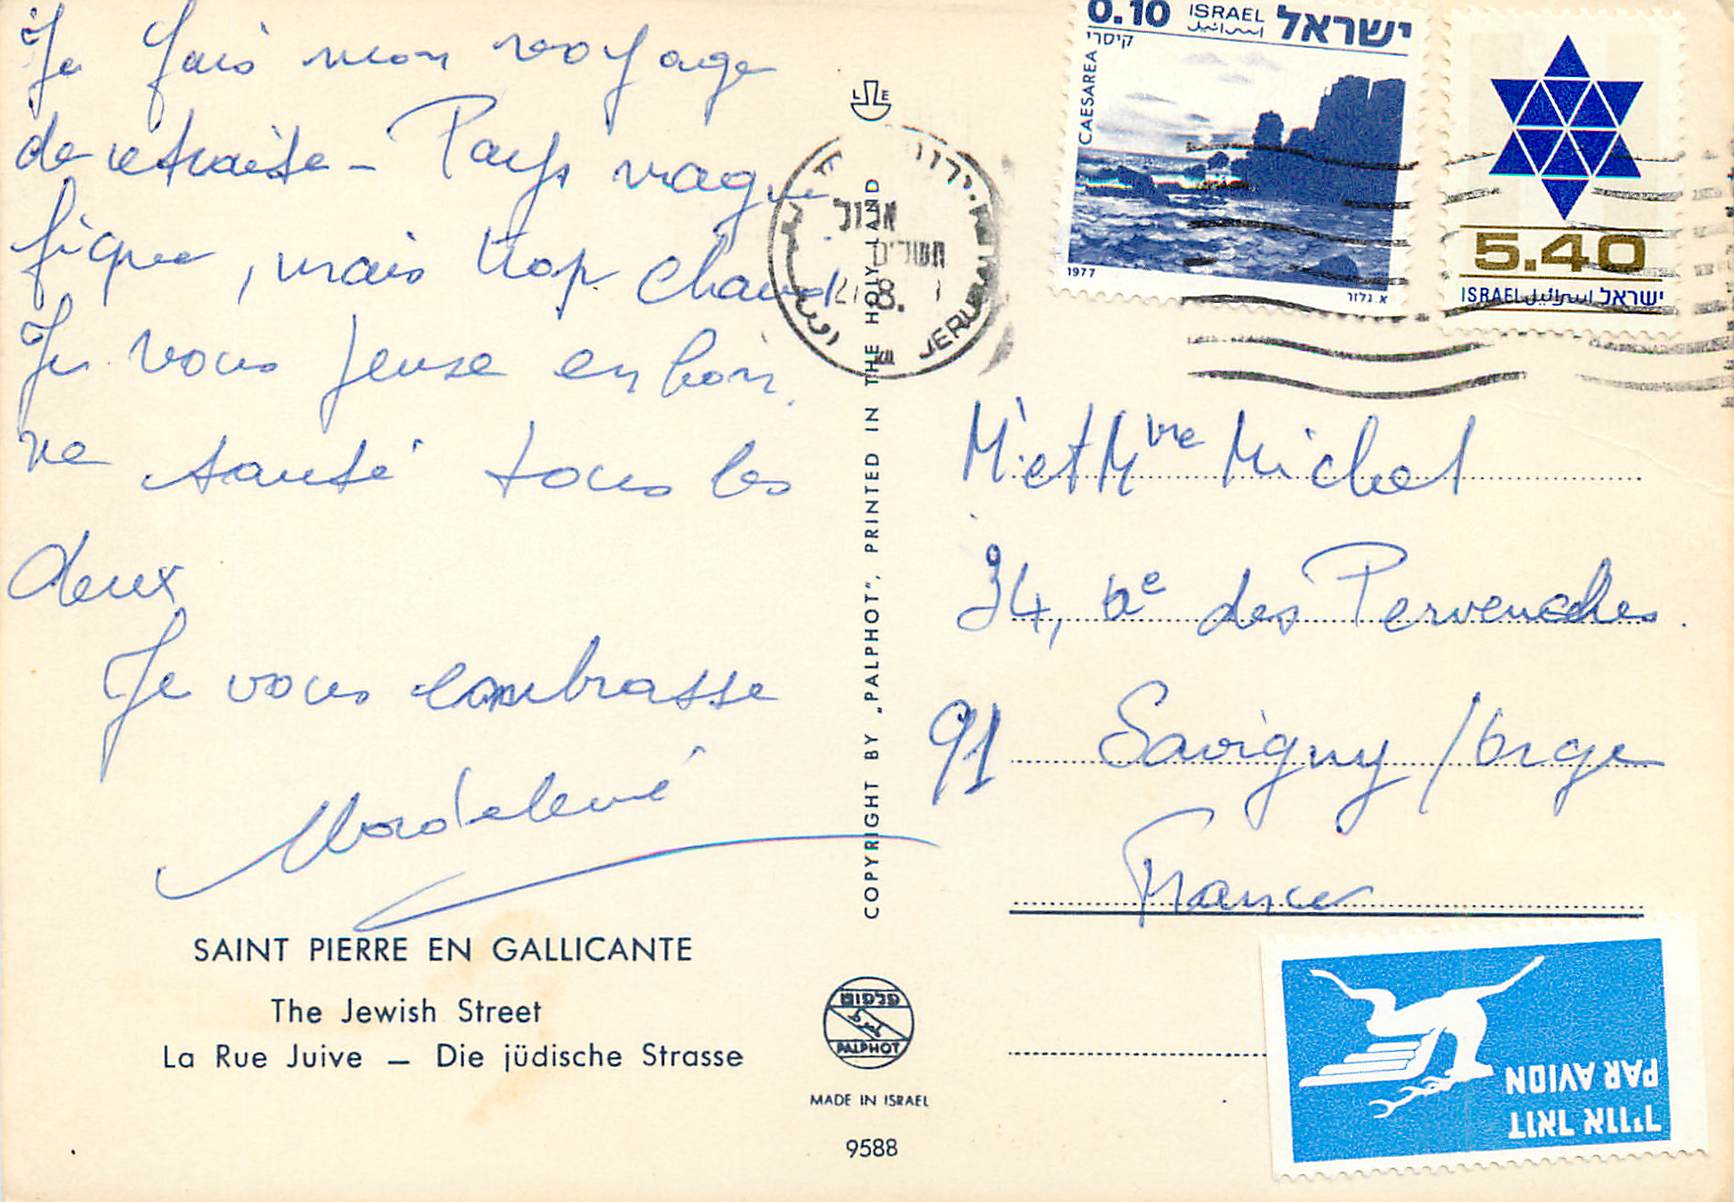 Je fais mon voyage
de retraite – Pays magni
fique, mais trop chaud
Je vous pense en bon
ne santé tous les
deux
Je vous embrasse
SAINT PIERRE EN GALLICANTE
The Jewish Street
La Rue Juive — Die jüdische Strasse
L E
COPYRIGHT BY „PALPHOT", PRINTED IN THE HOLY LAND
פלפוט
PALPHOT
MADE IN ISRAEL
9588
JERUSALEM
0.10 ISRAEL اسرائيل ישראל
קיסרי
CAESAREA
1977
א. גלזר
5.40
ISRAEL اسرائيل ישראל
Mr et Mme Michel
34, Ae des Pervenches
91 Savigny /Orge
France
דואר אוויר
PAR AVION